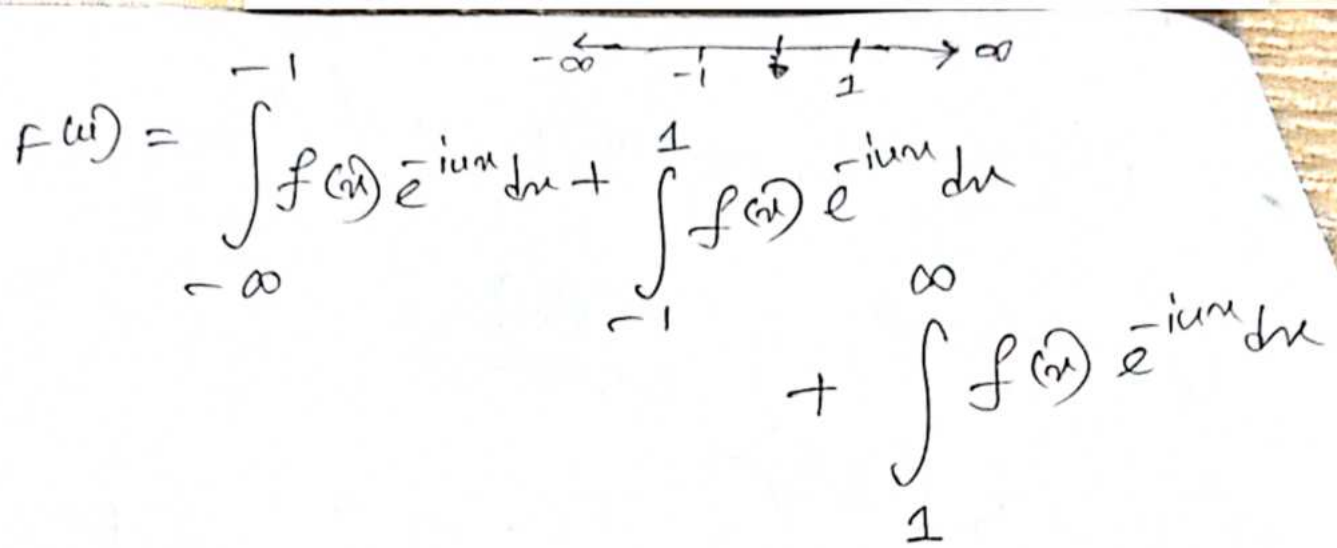 -∞ ← -1 0 1 → ∞
F(u) = ∫_{-∞}^{-1} f(x) e^{-iux} dx + ∫_{-1}^{1} f(x) e^{-iux} dx
+ ∫_{1}^{∞} f(x) e^{-iux} dx